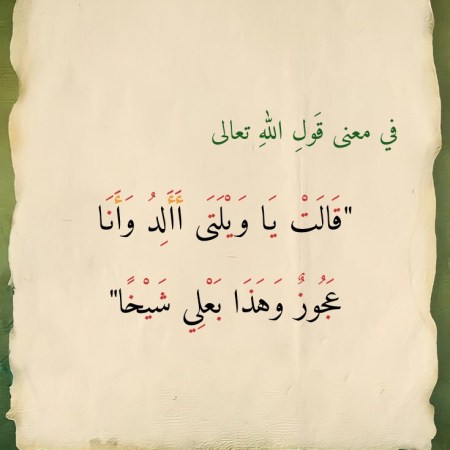 في معنى قَولِ اللهِ تعالى
"قَالَتْ يَا وَيْلَتَى أَأَلِدُ وَأَنَا
عَجُوزٌ وَهَذَا بَعْلِي شَيْخًا"